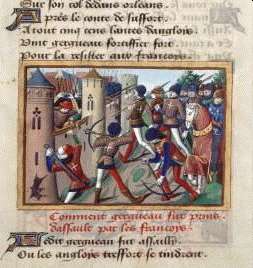 Sur son col dedans orleans.
Apres le conte de suffort.
A tout cinq cens lances danglois
Vint gergueau fortiffier fort
Pour la resister aux francoys.
Comment gergueau fut prins
dassault par les francoys
Audit gergueau fut assailly
Ou les angloys tresfort se tindrent.